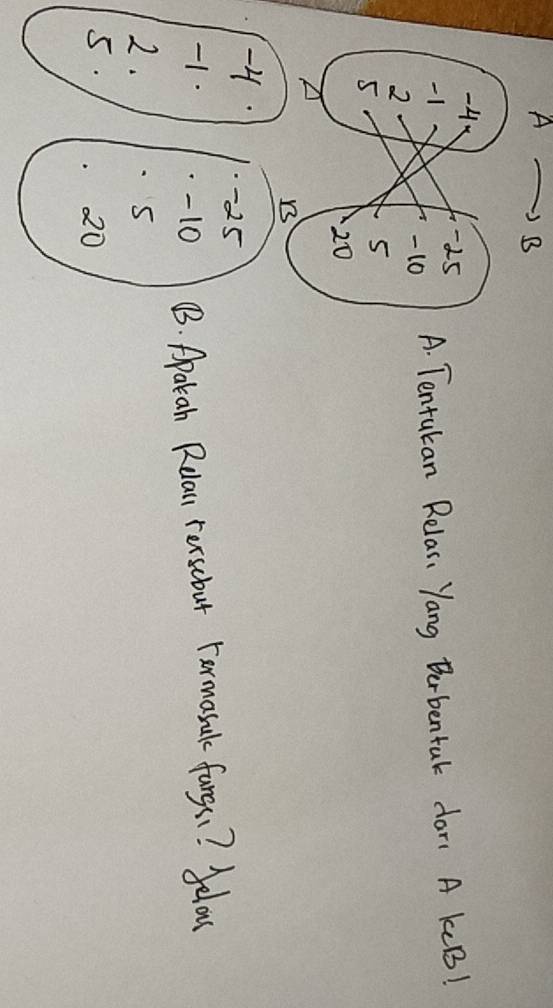 A → B
-4
-1
2
5
-25
-10
5
20
A. Tentukan Relasi Yang Berbentuk dari A ke B!
A
B
-4 .
-1 .
2 .
5 .
. -25
. -10
. 5
. 20
B. Apakah Relasi tersebut termasuk fungsi? Jelas